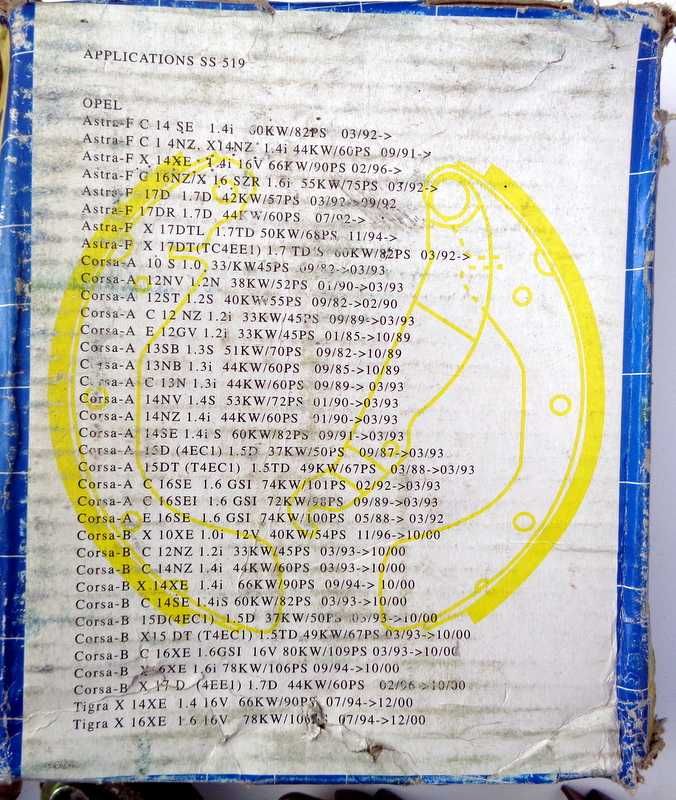 APPLICATIONS SS 519
OPEL
Astra-F C 14 SE 1.4i 60KW/82PS 03/92->
Astra-F C 1 4NZ, X14NZ 1.4i 44KW/60PS 09/91->
Astra-F X 14XE 1.4i 16V 66KW/90PS 02/96->
Astra-F C 16NZ/X 16 SZR 1.6i 55KW/75PS 03/92->
Astra-F 17D 1.7D 42KW/57PS 03/92->09/92
Astra-F 17DR 1.7D 44KW/60PS 07/92->
Astra-F X 17DTL 1.7TD 50KW/68PS 11/94->
Astra-F X 17DT(TC4EE1) 1.7 TD S 60KW/82PS 03/92->
Corsa-A 10 S 1.0 33/KW45PS 09/82->03/93
Corsa-A 12NV 1.2N 38KW/52PS 01/90->03/93
Corsa-A 12ST 1.2S 40KW55PS 09/82->02/90
Corsa-A C 12 NZ 1.2i 33KW/45PS 09/89->03/93
Corsa-A E 12GV 1.2i 33KW/45PS 01/85->10/89
Corsa-A 13SB 1.3S 51KW/70PS 09/82->10/89
Corsa-A 13NB 1.3i 44KW/60PS 09/85->10/89
Corsa-A C 13N 1.3i 44KW/60PS 09/89-> 03/93
Corsa-A 14NV 1.4S 53KW/72PS 01/90->03/93
Corsa-A 14NZ 1.4i 44KW/60PS 01/90->03/93
Corsa-A 14SE 1.4i S 60KW/82PS 09/91->03/93
Corsa-A 15D (4EC1) 1.5D 37KW/50PS 09/87->03/93
Corsa-A 15DT (T4EC1) 1.5TD 49KW/67PS 03/88->03/93
Corsa-A C 16SE 1.6 GSI 74KW/101PS 02/92->03/93
Corsa-A C 16SEI 1.6 GSI 72KW/98PS 09/89->03/93
Corsa-A E 16SE 1.6 GSI 74KW/100PS 05/88-> 03/92
Corsa-B X 10XE 1.0i 12V 40KW/54PS 11/96->10/00
Corsa-B C 12NZ 1.2i 33KW/45PS 03/93->10/00
Corsa-B C 14NZ 1.4i 44KW/60PS 03/93->10/00
Corsa-B X 14XE 1.4i 66KW/90PS 09/94-> 10/00
Corsa-B C 14SE 1.4iS 60KW/82PS 03/93->10/00
Corsa-B 15D(4EC1) 1.5D 37KW/50PS 03/93->10/00
Corsa-B X15 DT (T4EC1) 1.5TD 49KW/67PS 03/93->10/00
Corsa-B C 16XE 1.6GSI 16V 80KW/109PS 03/93->10/00
Corsa-B 1.6i 78KW/106PS 09/94->10/00
Corsa-B X 17 D (4EE1) 1.7D 44KW/60PS 02/96->10/00
Tigra X 14XE 1.4 16V 66KW/90PS 07/94->12/00
Tigra X 16XE 1 6 16V 78KW/106PS 07/94->12/00